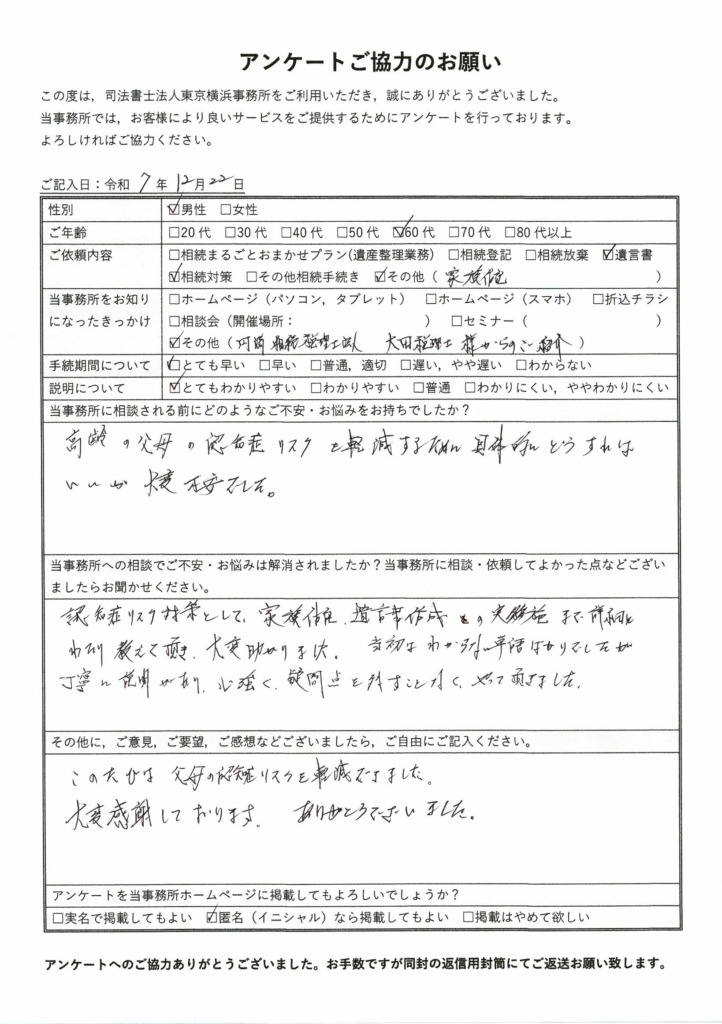 アンケートご協力のお願い
この度は，司法書士法人東京横浜事務所をご利用いただき，誠にありがとうございました。
当事務所では，お客様により良いサービスをご提供するためにアンケートを行っております。
よろしければご協力ください。
ご記入日：令和 7 年 12 月 22 日
性別 ☑男性 □女性
ご年齢 □20 代 □30 代 □40 代 □50 代 ☑60 代 □70 代 □80 代以上
ご依頼内容 □相続まるごとおまかせプラン(遺産整理業務) □相続登記 □相続放棄 ☑遺言書
☑相続対策 □その他相続手続き ☑その他（ 家族信託 ）
当事務所をお知り □ホームページ（パソコン，タブレット） □ホームページ（スマホ） □折込チラシ
になったきっかけ □相談会（開催場所： ） □セミナー（ ）
☑その他（ 税理士法人 太田税理士 様からのご紹介 ）
手続期間について ☑とても早い □早い □普通，適切 □遅い，やや遅い □わからない
説明について ☑とてもわかりやすい □わかりやすい □普通 □わかりにくい，ややわかりにくい
当事務所に相談される前にどのようなご不安・お悩みをお持ちでしたか？
高齢の父母の認知症リスクを軽減するために具体的にどうすれば
いいか 大変 不安でした。
当事務所への相談でご不安・お悩みは解消されましたか？当事務所に相談・依頼してよかった点などござい
ましたらお聞かせください。
認知症リスク対策として、家族信託、遺言書作成 の実施まで詳細に
わたり教えて頂き、大変助かりました。 当初はわからない単語ばかりでしたが
丁寧に説明があり、心強く、疑問点を残すことなく、やって頂きました。
その他に，ご意見，ご要望，ご感想などございましたら，ご自由にご記入ください。
このたびは 父母の認知症リスクを軽減できました。
大変感謝しております。 ありがとうございました。
アンケートを当事務所ホームページに掲載してもよろしいでしょうか？
□実名で掲載してもよい ☑匿名（イニシャル）なら掲載してもよい □掲載はやめて欲しい
アンケートへのご協力ありがとうございました。お手数ですが同封の返信用封筒にてご返送お願い致します。